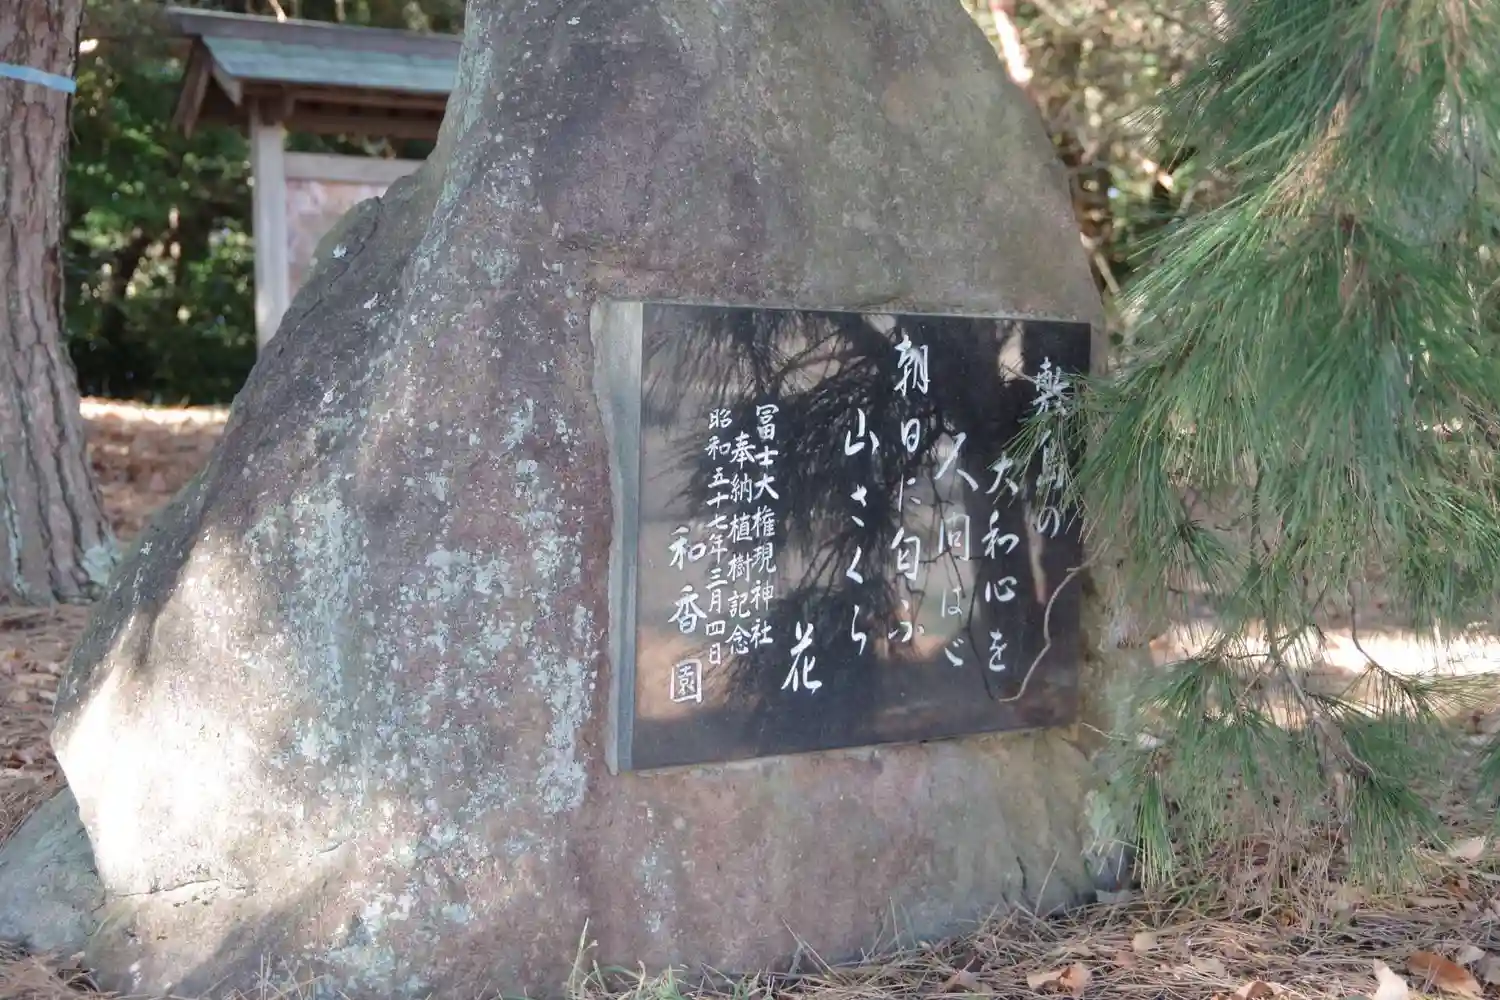 敷島の
大和心を
人問はゞ
朝日に匂ふ
山さくら
花
冨士大権現神社
奉納植樹記念
昭和五十七年三月四日
和香園